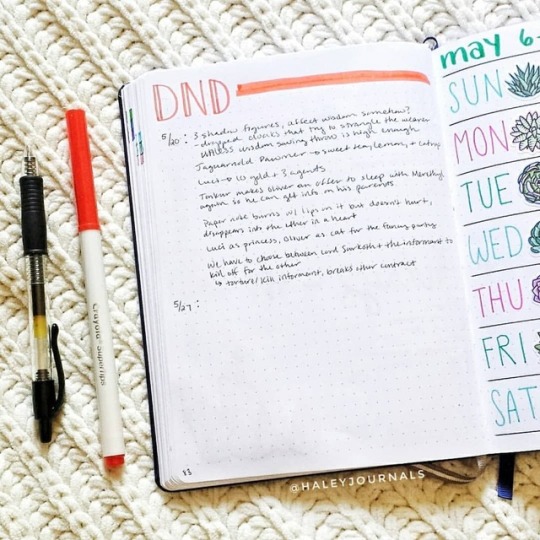 DND
5/20: 3 shadow figures, affect wisdom somehow?
- dropped cloaks that try to strangle the wearer
unless wisdom saving throw is high enough
Jaguarnold Pawmer → sweet tea, lemon, +
Luci → 10 gold + 3 agends
makes Oliver an offer to sleep with
again so he can get info on his parents
Paper note burns w/ lips on it but doesn't hurt,
disappears into the ether in a heart
Luci as princess, Oliver as cat for the fancy party
We have to choose between Lord + the informant to
kill off for the other
↳ torture/kill informant, breaks other contract
5/27:
83
may 6-
SUN
MON
TUE
WED
THU
FRI
SAT
Crayola SuperTips
@HALEYJOURNALS